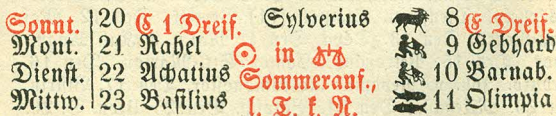 Sonnt. 20 C 1 Dreif. Sylverius 8 C Dreif.
Mont. 21 Rahel ☉ in ♎ 9 Gebhard
Dienst. 22 Achatius Sommeranf., 10 Barnab.
Mittw. 23 Basilius l. T. k. N. 11 Olimpia